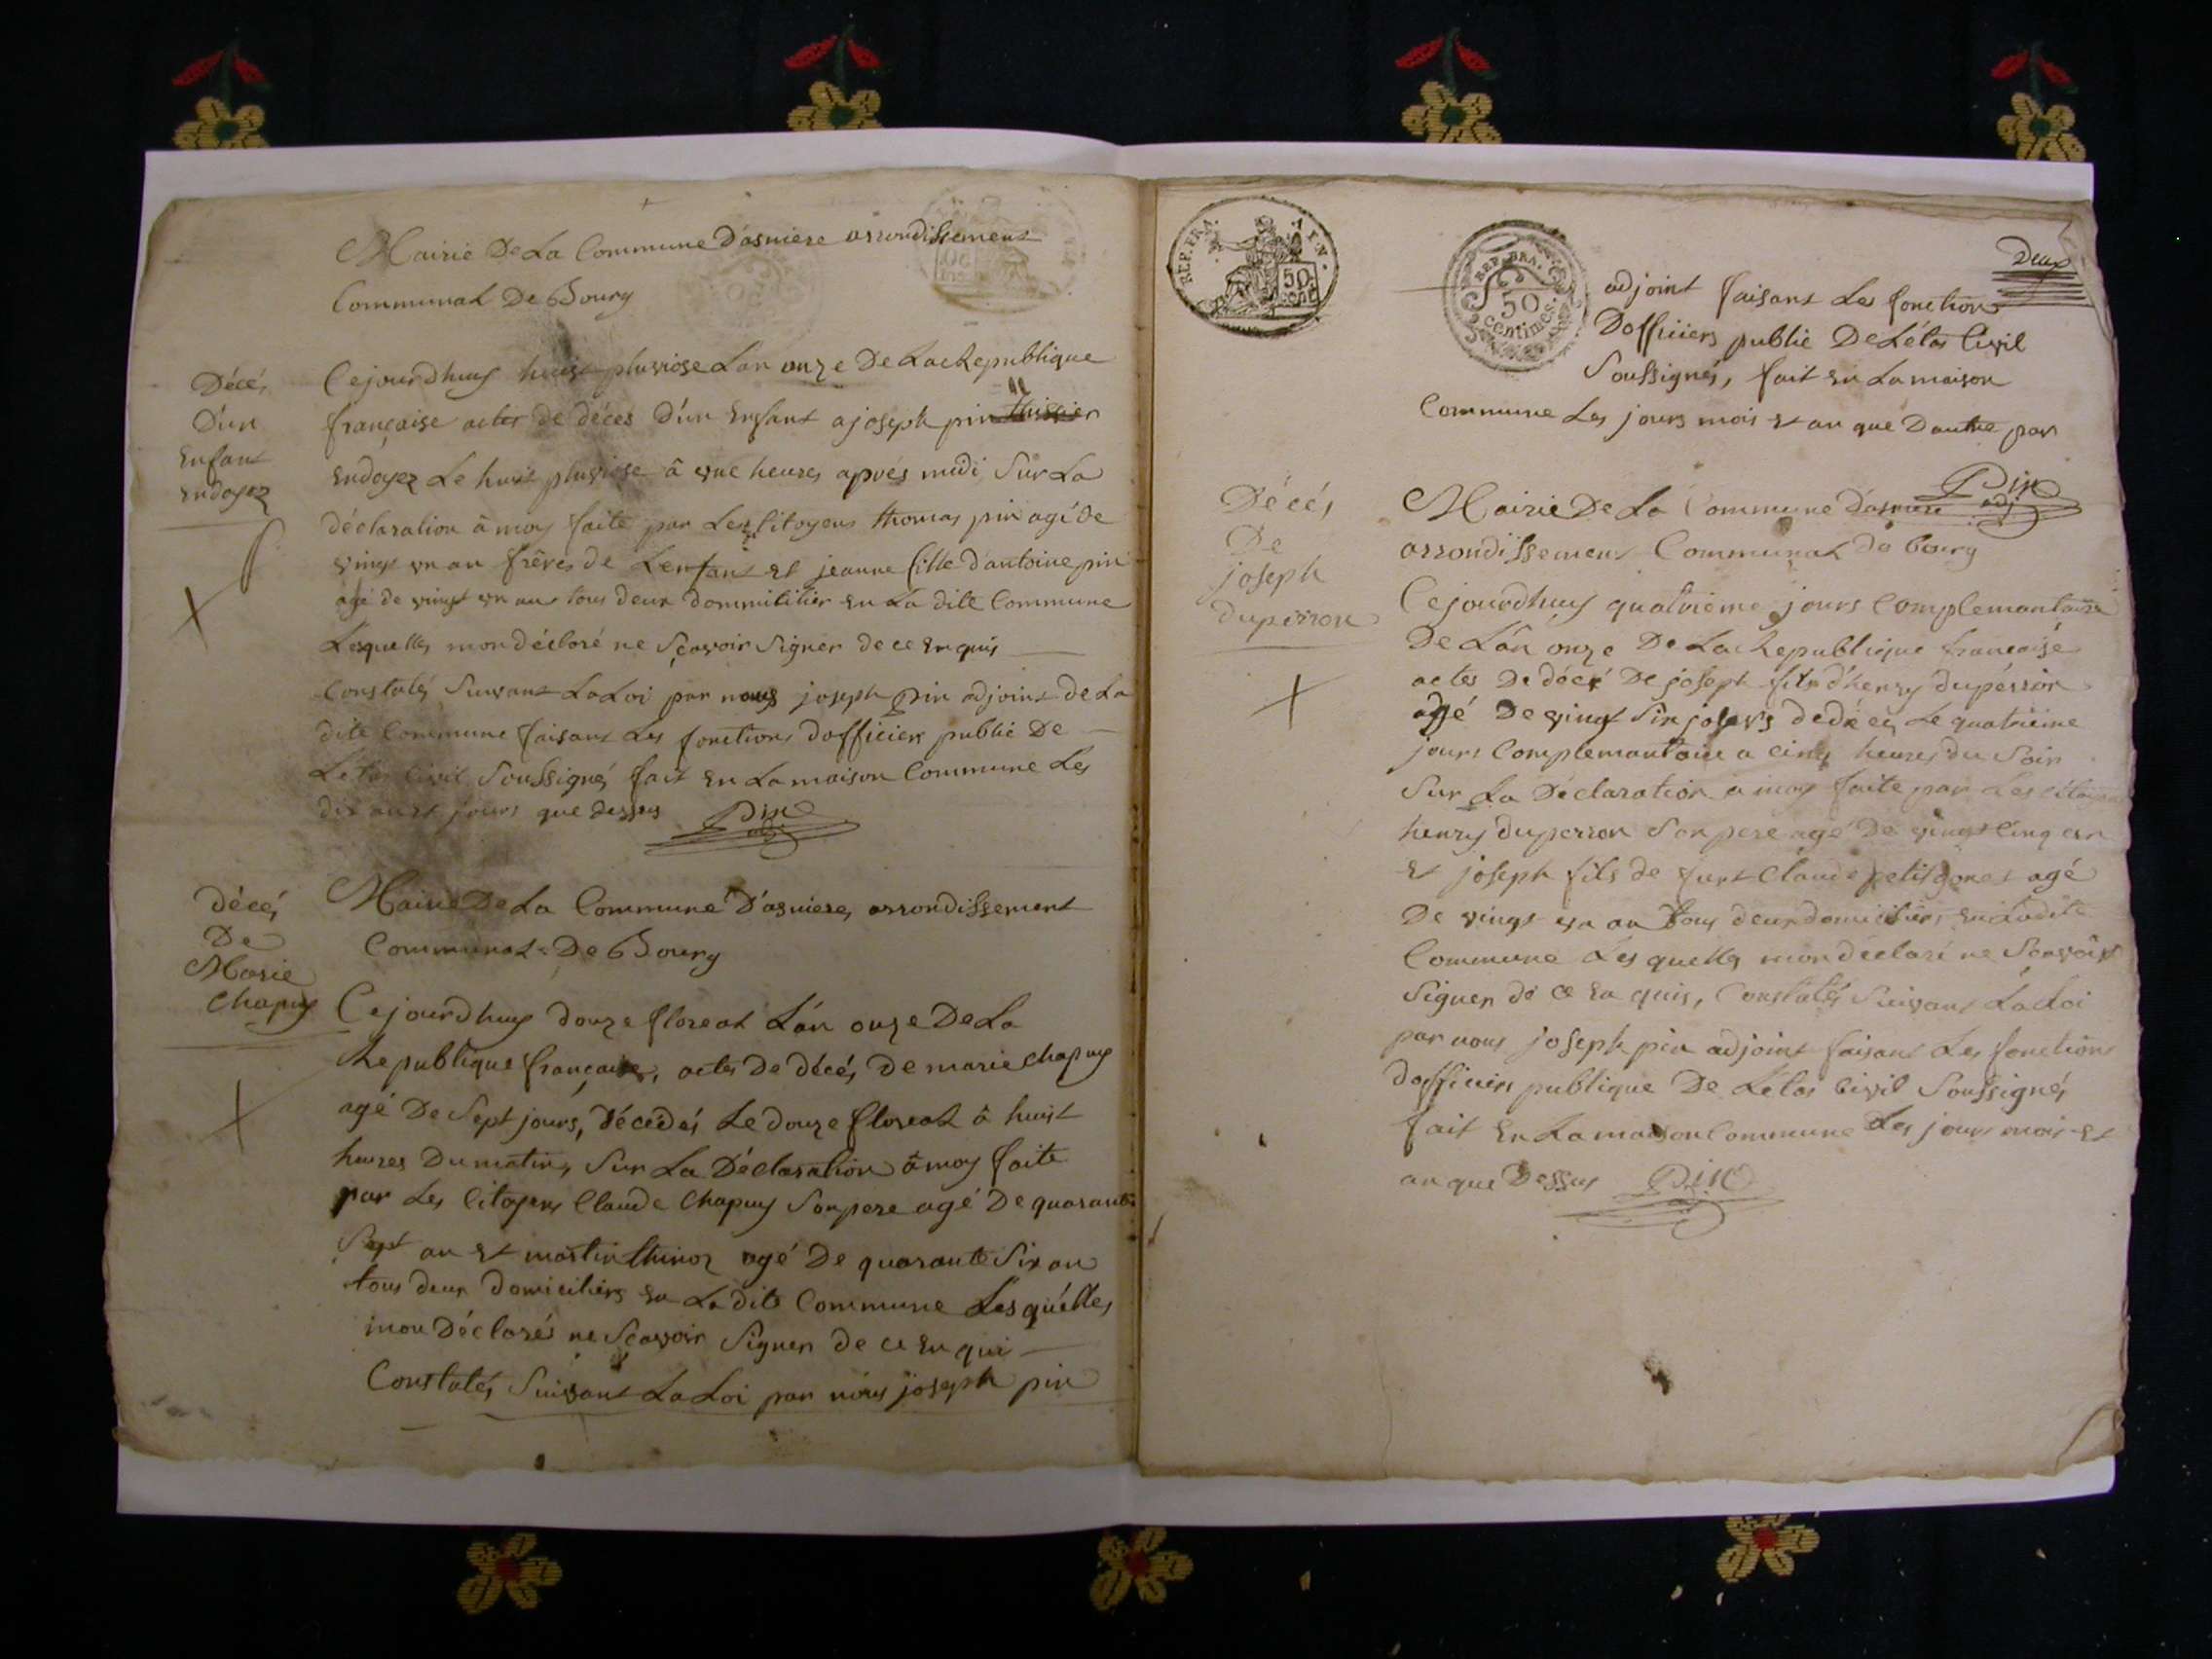 Mairie De La Commune D'asniere arrondissement
Communal De Bourg
Décés
D'un
Enfant
Endoyez
Cejourdhuy huist pluviose L'an onze De La Republique
française actes de décés D'un Enfant a joseph pin
Endoyez Le huit pluviose â une heures aprés midi Sur La
déclaration â moy faite par Les Citoyens thomas pin agé de
vingt un an fréres de Lenfant et jeanne fille d'antoine pin
agé de vingt un an tous deux dommicilier en La dite Commune
Lesquelles mon déclaré ne Sçavoir Signer de ce Enquis
Constatés Suivant La Loi par nous joseph pin adjoint de La
dite Commune faisant Les fonctions dofficier public De
Létas Civil Soussignés fait en La maison Commune Les
jours que dessus Pin
adj
décés
De
Marie
Chapuy
Mairie De La Commune D'asnieres arrondissement
Communal De Bourg
Cejourdhuy douze floreal L'an onze De La
Republique française, actes De décés De marie Chapuy
agé De Sept jours, décédés Le douze floreal â huist
heures Du matins Sur La Déclaration â moy faite
par Les Citoyens Claude Chapuy Son pere agé De quarante
Sept an et martin agé De quarante Six an
tous deux domiciliers en La dite Commune Lesquélles
mon Déclarés ne Sçavoir Signer de ce En qui
Constatés Suivant La Loi par nous joseph pin
REP. FRA. AYN.
50 CENT
REP. FRA.
50
centimes
Deux
adjoint faisant Les fonction
Dofficiers public De Létas Civil
Soussignés, fait en La maison
Commune Les jours mois et an que D'autre par
Pin
adj
Décés
De
joseph
duperron
Mairie De La Commune Dasniere
arrondissement Communal de bourg
Cejourdhuy quatrieme jours Complemantaire
De L'an onze De La Republique française
actes De décé De joseph fils d'henry duperron
agé De vingt Six jours dedeces Le quatrieme
jours Complemantaire a Cinq heures du Soir
Sur La Déclaration a moy faite par Les citoyens
henry duperron Son pere agé De vingt Cinq an
et joseph fils de Claude agé
De vingt un an tous deux domiciliers en Ladite
Commune Les quelles mon déclaré ne Savoir
Signer de ce En quis, Constatés Suivant La Loi
par nous joseph pin adjoint faisant Les fonctions
dofficiers publique De Létas Civil Soussignés
fait En La maison Commune Les jours mois et
an que Dessus Pin
adj